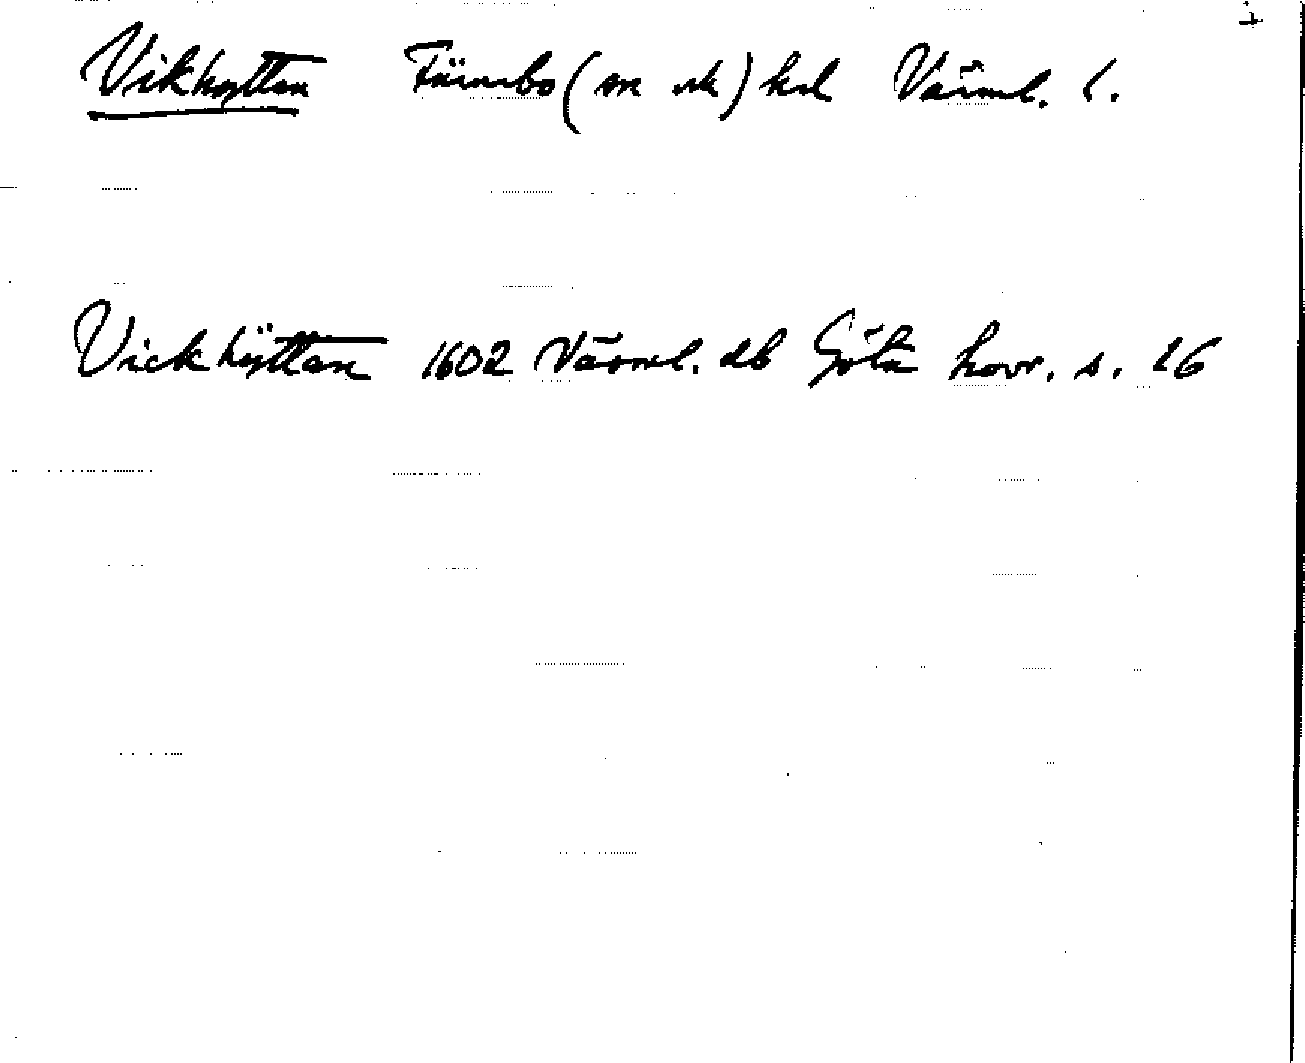 Vikhyttan Färnbo (sn sk) hd Värml. l.
Vickhÿttan 1602 Värml. db Göta hovr. s. 26